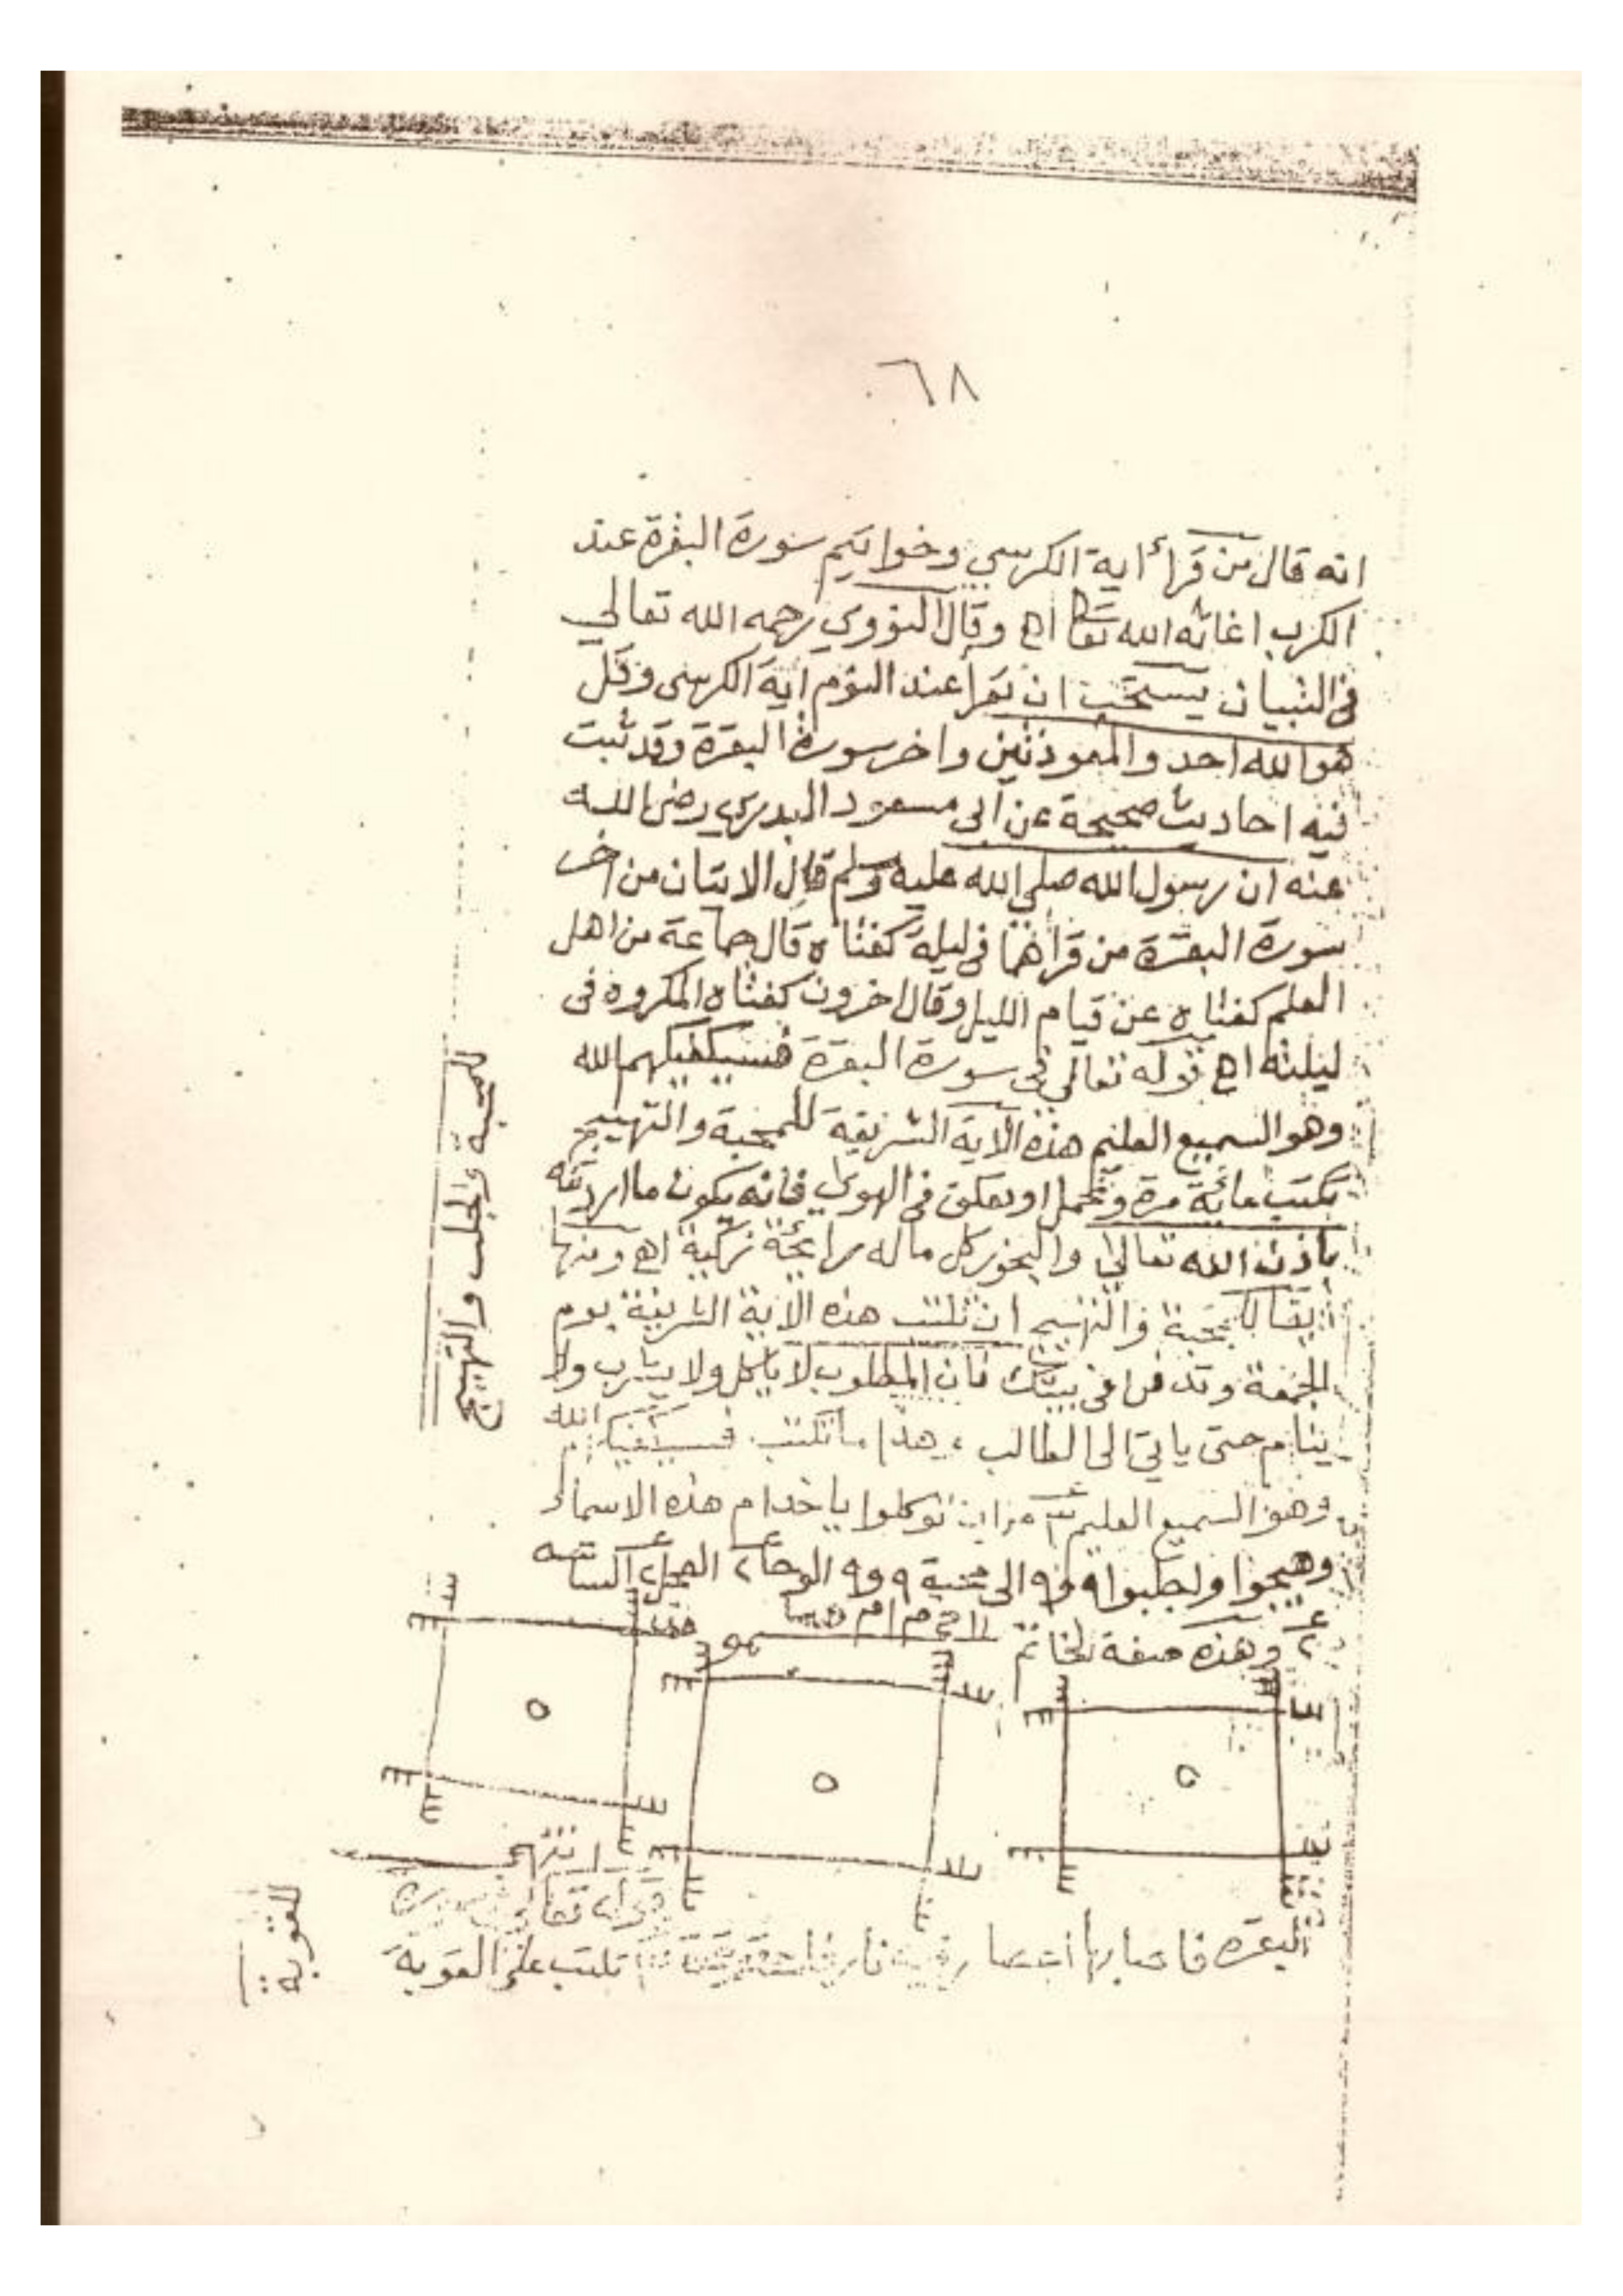 ٦٨
انه قال من قرأ اية الكرسي وخواتيم سورة البقرة عند
الكرب اغاثه الله تعا اهـ وقال النووي رحمه الله تعالي
في التبيان يستحب ان يقرا عند النوم اية الكرسي وقل
هو الله احد والمعوذتين واخر سورة البقرة وقد ثبت
فيه احاديث صحيحة عن ابى مسعود البدري رضى الله
عنه ان رسول الله صلي الله عليه وسلم قال الايتان من اخر
سورة البقرة من قراهما في ليلة كفتاه قال جماعة من اهل
العلم كفتاه عن قيام الليل وقال اخرون كفتاه المكروه فى
ليلته اهـ قوله تعالي فى سورة البقرة فسيكفيكهم الله
وهو السميع العليم هذه الآية الشريفة للمحبة والتهييج
تكتب مائة مرة وتحمل او تعلق فى الهوي فانه يكون ما اردته
باذن الله تعالي والبخور كل ماله رائحة زكية اهـ ومنها
ايضا للمحبة والتهييج ان تكتب هذه الآية الشريفة يوم
الجمعة وتدفن فى بيتك فان المطلوب لا ياكل ولا يشرب ولا
ينام حتى ياتي الى الطالب، هذا ما تكتب فسيكفيكهم الله
وهو السميع العليم مرات توكلوا يا خدام هذه الاسماء
وهيجوا واجلبوا الى محبة الوحا الساعه
وهذه صفة الخاتم
انتهى
قوله تعالى سورة
البقرة فاصابها اعصار فيه نار فاحترقت تكتب على القوبة
للمحبة والجلب والتهييج
للقوبة